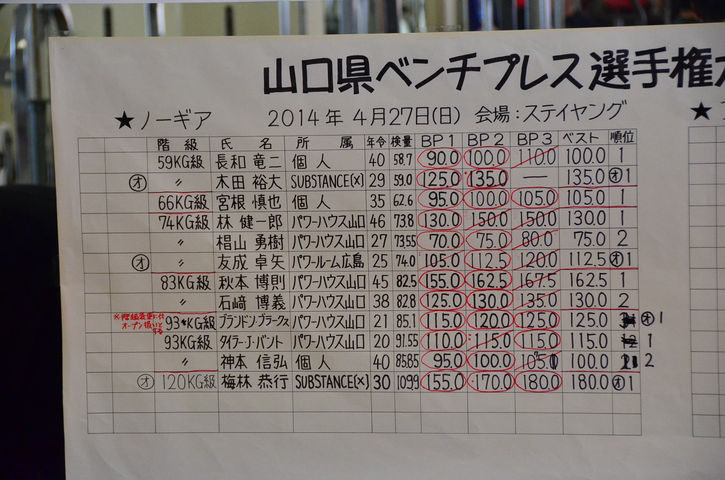 山口県ベンチプレス選手権
★ノーギア 2014年4月27日(日) 会場:ステイヤング ★
階級 氏名 所属 年令 検量 BP1 BP2 BP3 ベスト 順位
59KG級 長和 竜二 個人 40 58.7 90.0 100.0 110.0 100.0 1
オ 〃 木田 裕大 SUBSTANCE(x) 29 59.0 125.0 135.0 — 135.0 オ1
66KG級 宮根 慎也 個人 35 62.6 95.0 100.0 105.0 105.0 1
74KG級 林 健一郎 パワーハウス山口 46 73.8 130.0 150.0 150.0 130.0 1
〃 椙山 勇樹 パワーハウス山口 27 73.55 70.0 75.0 80.0 75.0 2
オ 〃 友成 卓矢 パワールーム広島 25 74.0 105.0 112.5 120.0 112.5 オ1
83KG級 秋本 博則 パワーハウス山口 45 82.5 155.0 162.5 167.5 162.5 1
〃 石﨑 博義 パワーハウス山口 38 82.8 125.0 130.0 135.0 130.0 2
オープン扱いとする 93*KG級 ブランドン・ブラークス パワーハウス山口 21 85.1 115.0 120.0 125.0 125.0 オ1
93KG級 タイラー・J・バント パワーハウス山口 20 91.55 110.0 115.0 115.0 115.0 1
〃 神本 信弘 個人 40 85.85 95.0 100.0 105.0 100.0 2
オ 120KG級 梅林 恭行 SUBSTANCE(x) 30 109.9 155.0 170.0 180.0 180.0 オ1